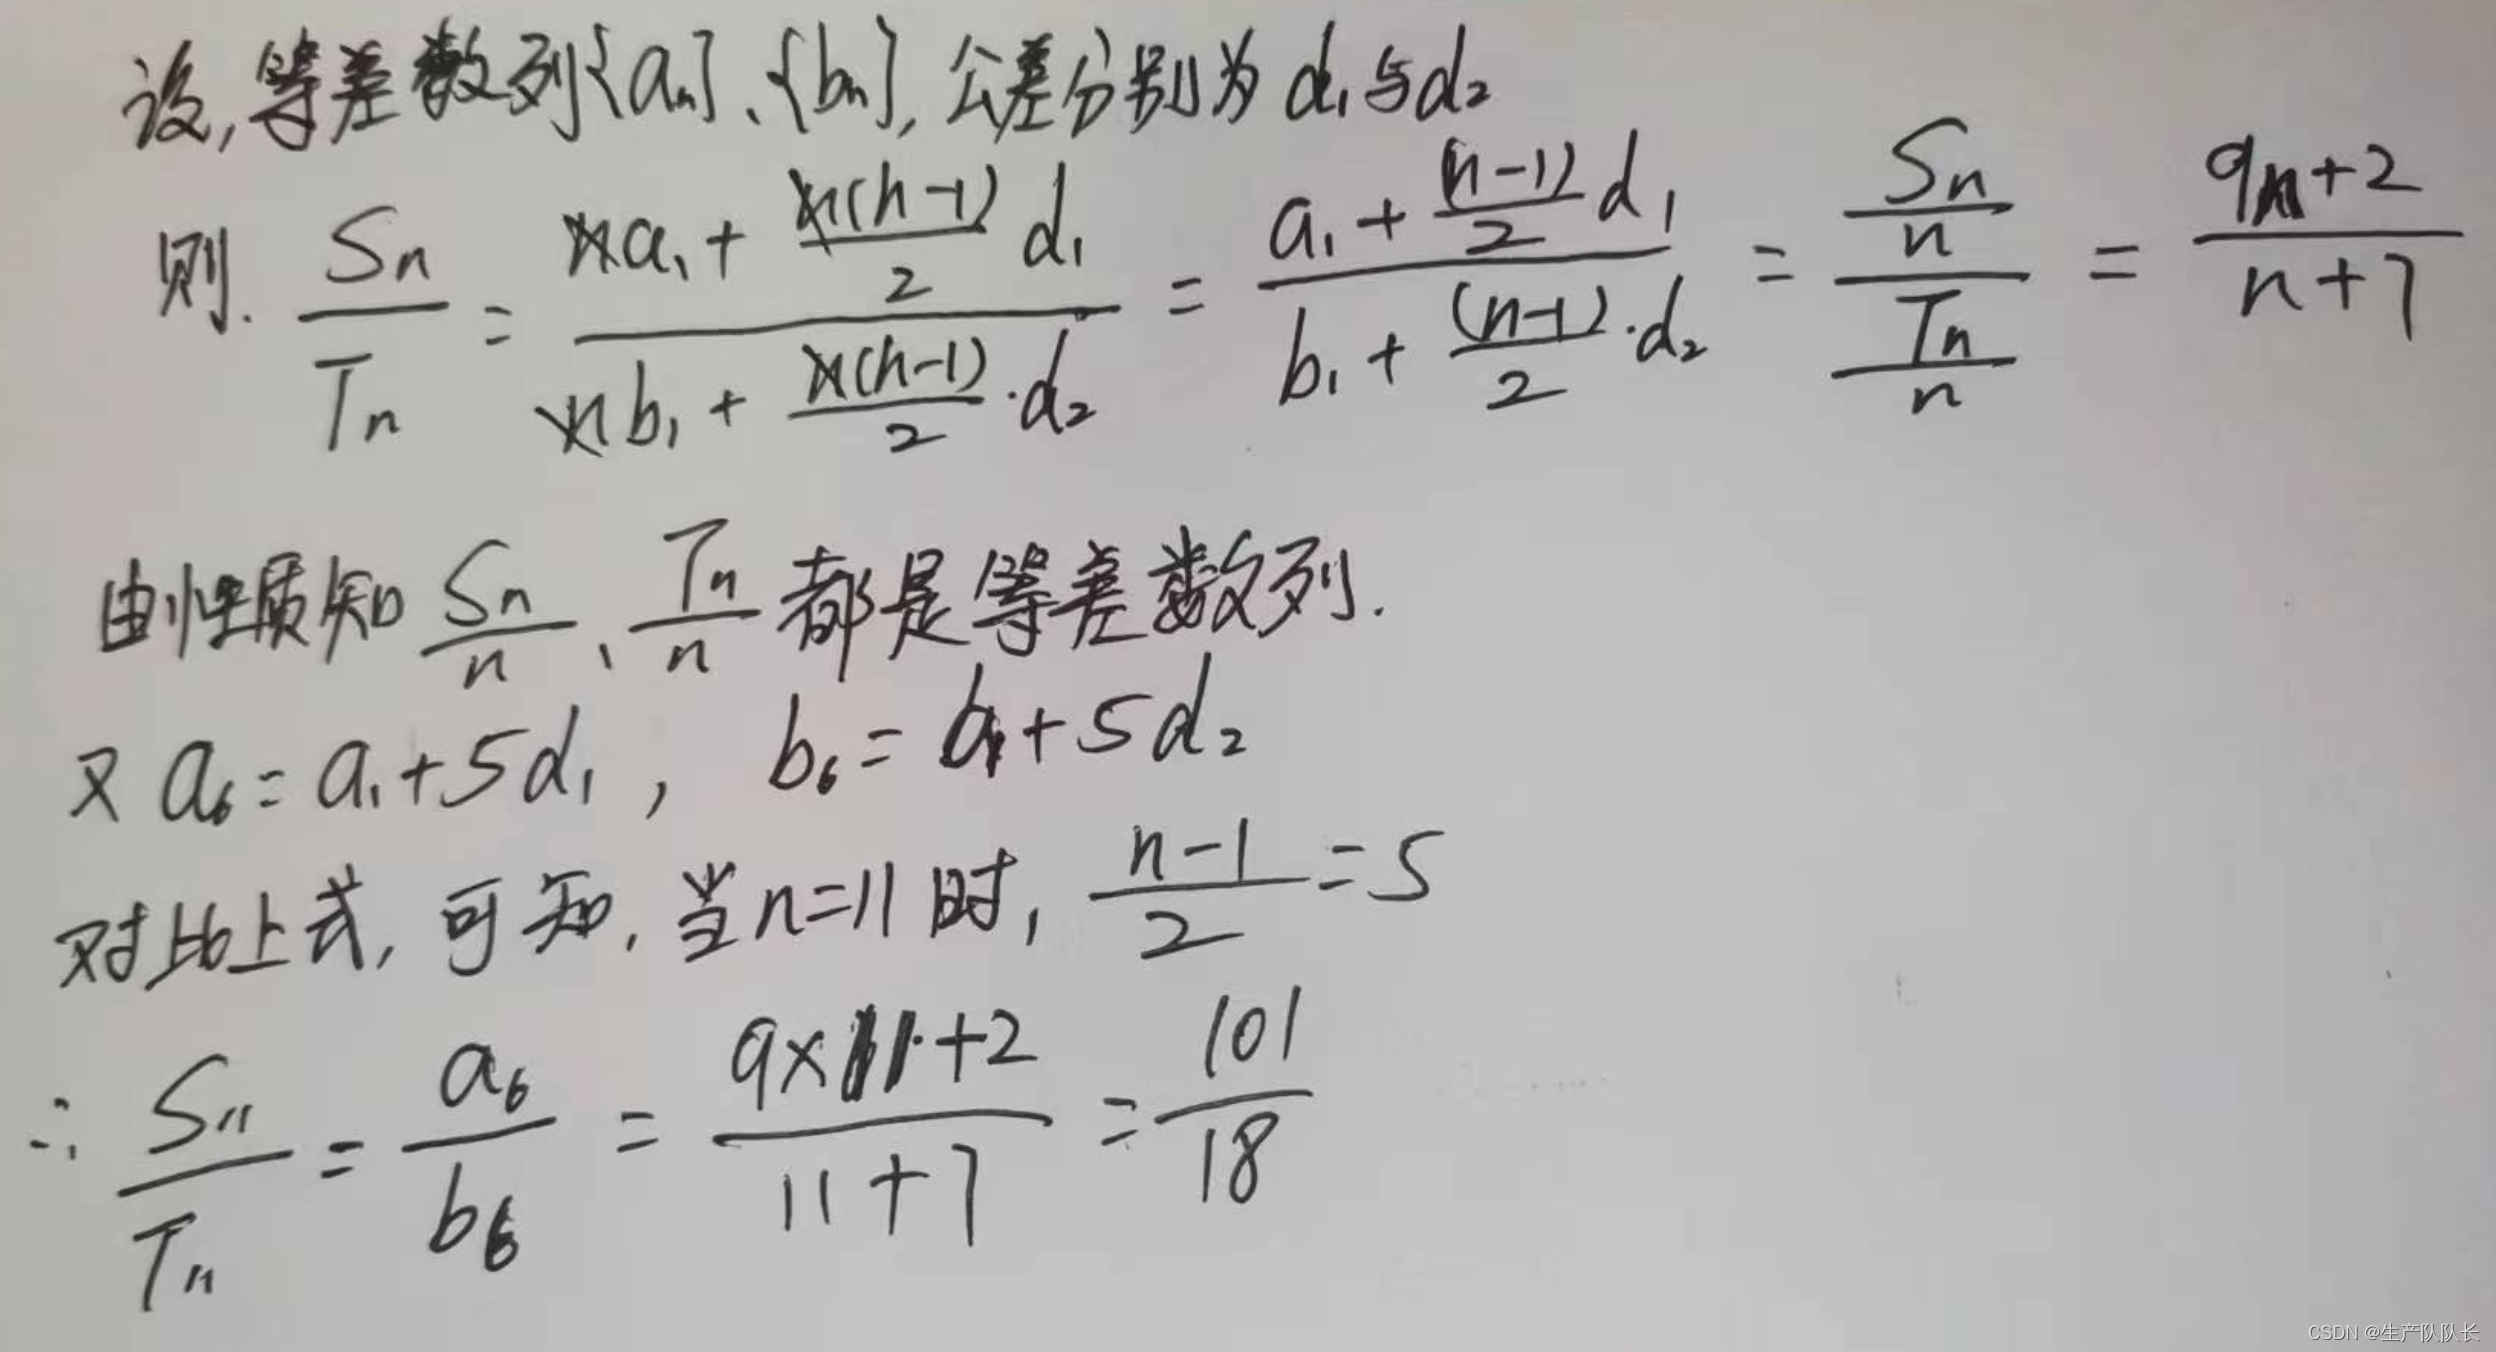 设,等差数列{an}、{bn},公差分别为d₁与d₂
则. Sn/Tn = (na₁ + n(n-1)/2 d₁)/(nb₁ + n(n-1)/2·d₂) = (a₁ + (n-1)/2 d₁)/(b₁ + (n-1)/2·d₂) = (Sn/n)/(Tn/n) = (9n+2)/(n+7)
由性质知 Sn/n、Tn/n 都是等差数列.
又 a₆ = a₁+5d₁, b₆ = b₁+5d₂
对比上式,可知,当n=11时, (n-1)/2 = 5
∴ S₁₁/T₁₁ = a₆/b₆ = (9×11+2)/(11+7) = 101/18
CSDN @生产队队长